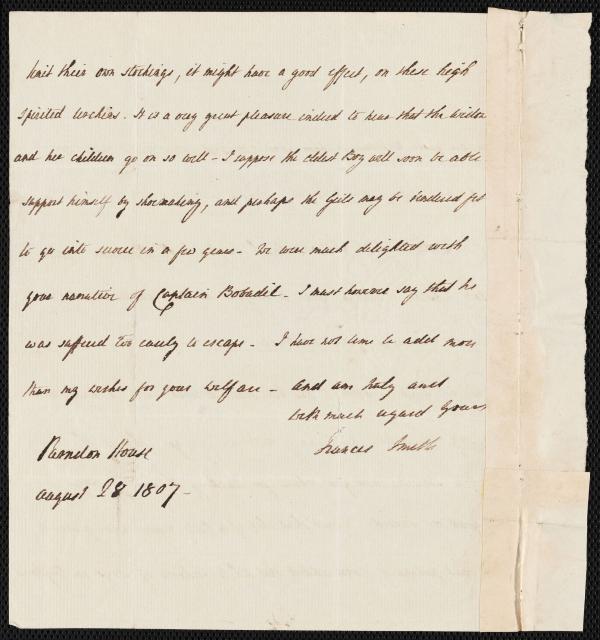 knit their own stockings, it might have a good effect, on these high
spirited urchins. It is a very great pleasure indeed to hear that the widow
and her children go on so well - I suppose the eldest Boy will soon be able
support himself by shoemaking, and perhaps the Girls may be rendered fit
to go into service in a few years - We were much delighted with
your narrative of Captain Bobadil - I must however say that he
was suffered too easily to escape - I have not time to add more
than my wishes for your welfare - and am truly and
with much regard Yours
Frances Smith
Parndon House
August 28 1807 -